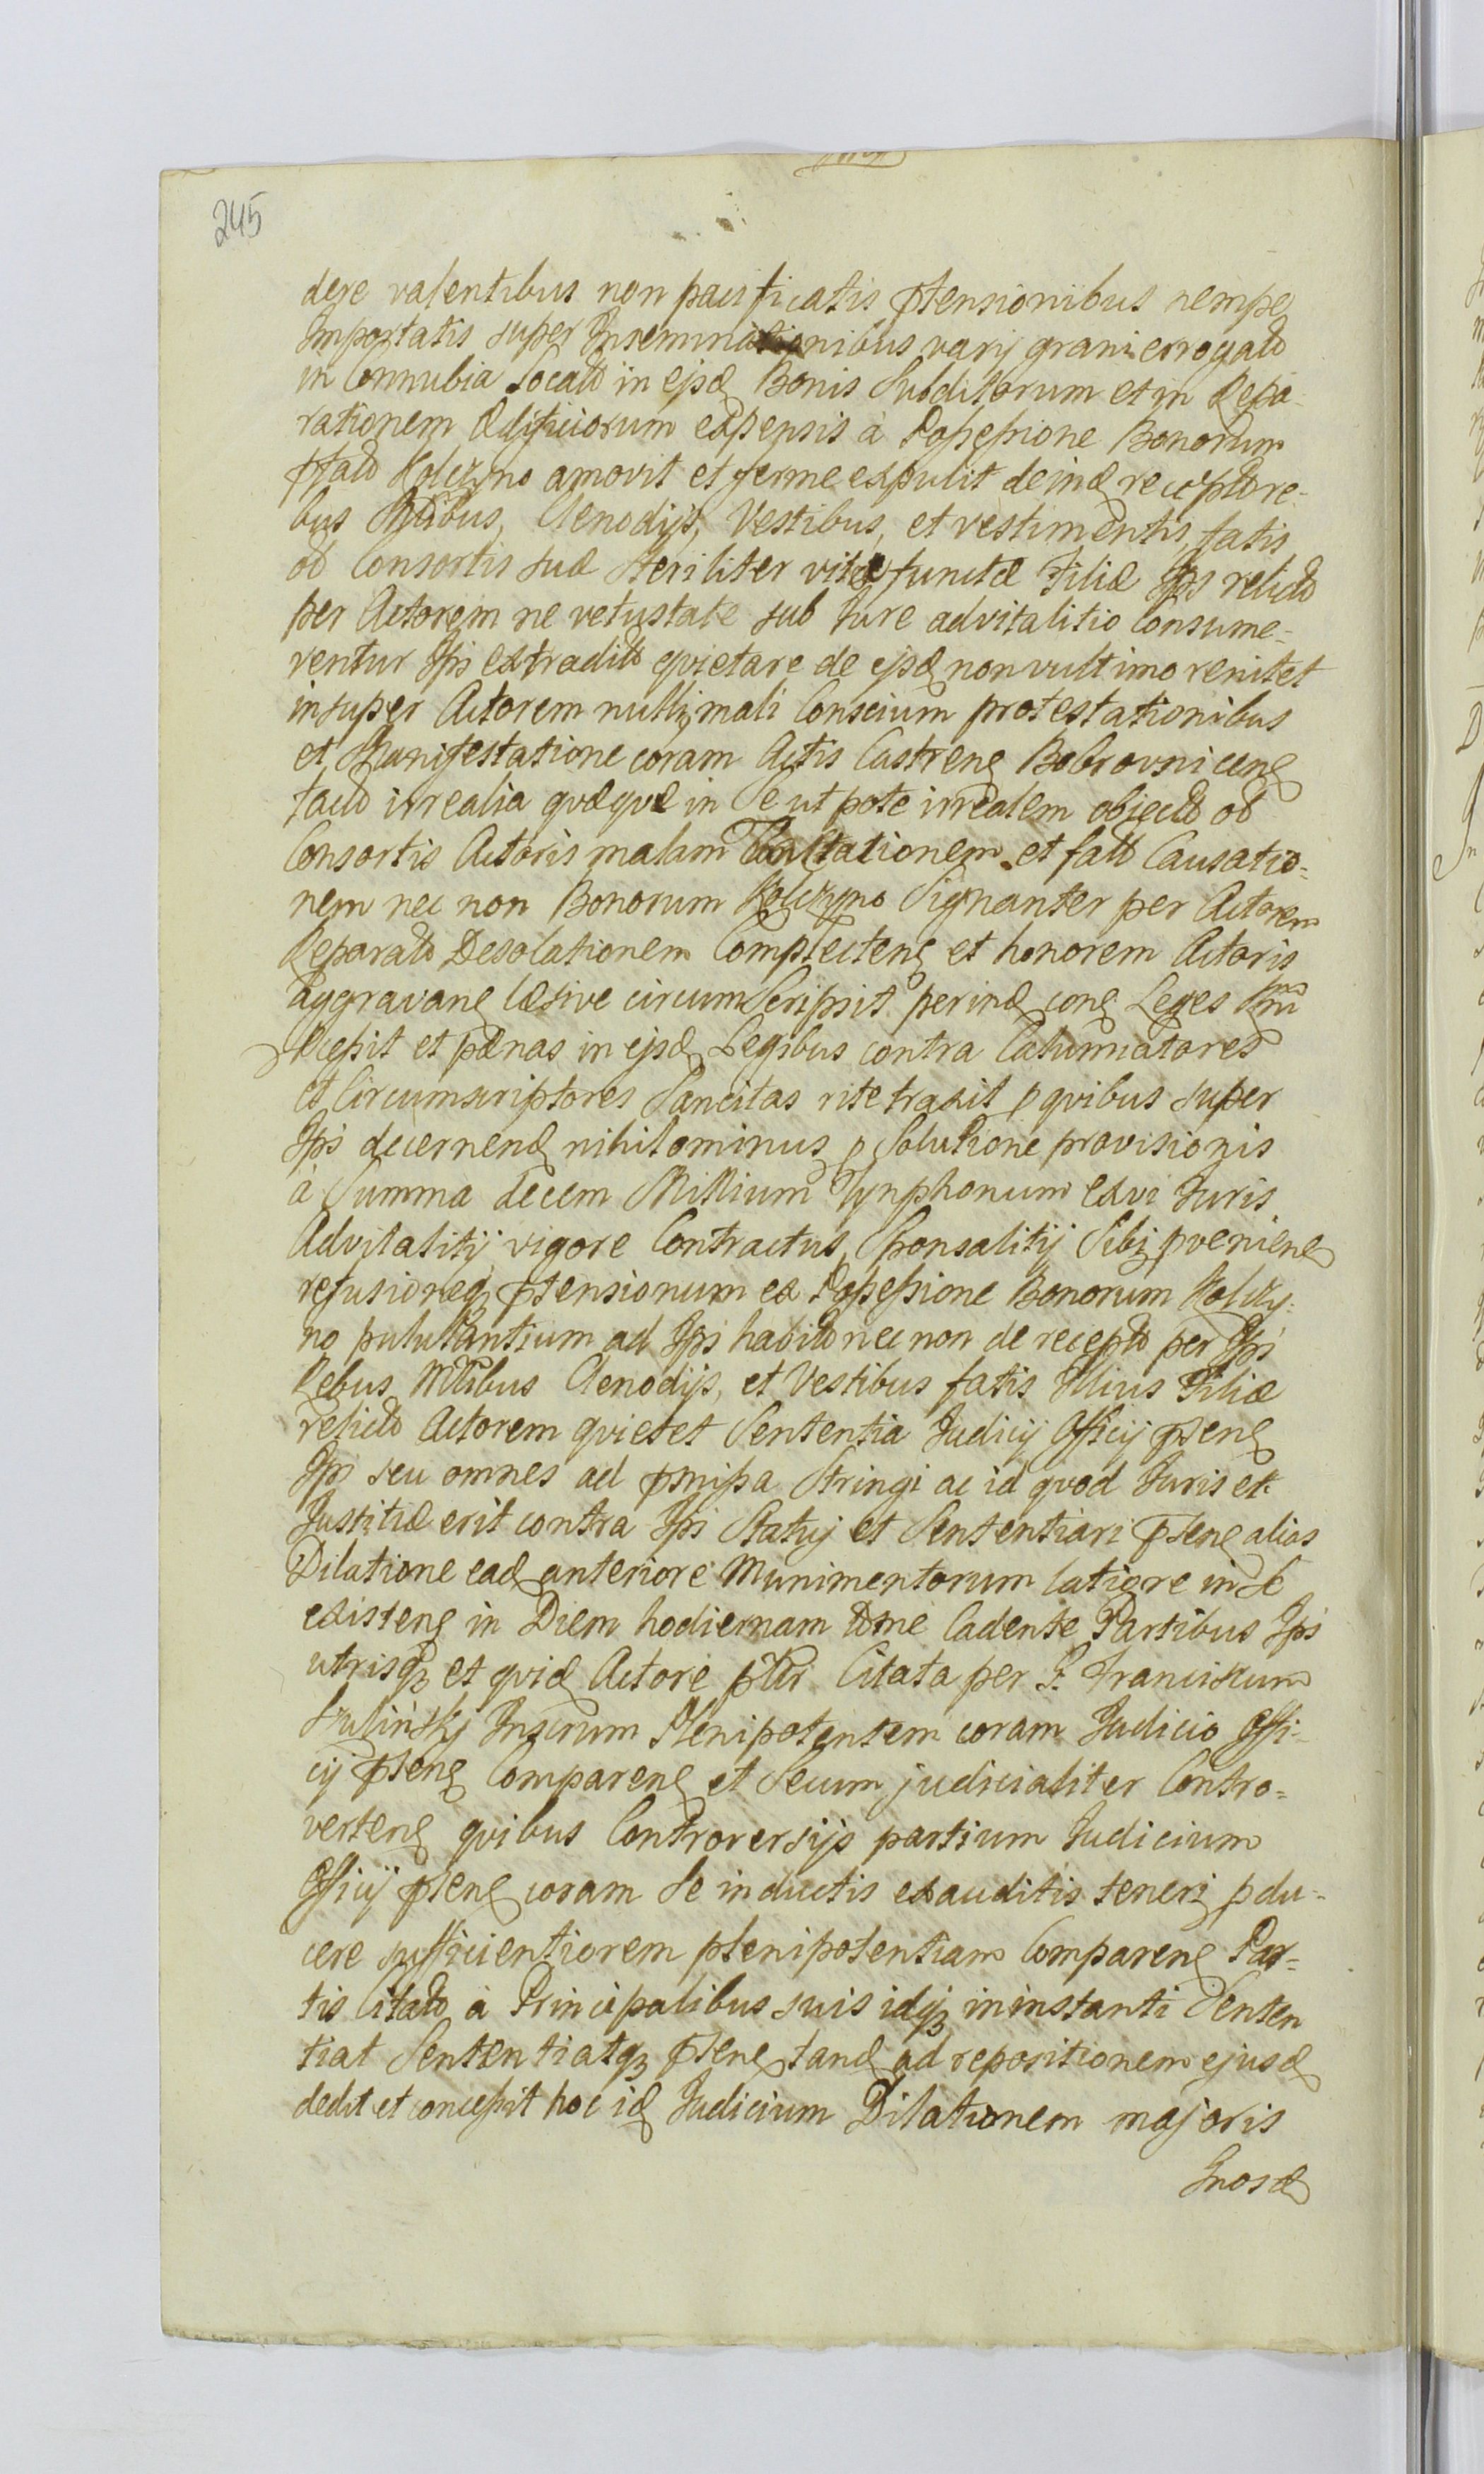 245
dere valentibus non pacificatis ptensionibus nempe
Importatis super Inseminationibus varij grani errogatd
in Connubia Locatd in ejsd Bonis Subditorum et in Repa-
rationem Ædificiorum expensis à Possessione Bonorum
pfatd Kolczyno amovit et ferme expulit deind receptd re-
bus Mbibus, Clenodijs, Vestibus, et vestimentis, fatis
ob Consortis suæ steriliter vitæ functæ Filiæ Ips relictd
per Actorem ne vetustate sub Jure advitalitio Consume=
rentur Ipis extraditd qvietare de ejsd non vult imo renitet
insuper Actorem nullius mali Conscium protestationibus
et Manifestatione coram Actis Castrens Bobrovnicens
factd irrealia qvæqve in Se ut pote irrealem objectd ob
Consortis Actoris malam Tractationem et fatd Causatio=
nem nec non Bonorum Kolczyno Signanter per Actorem
Reparatd Desolationem Complectens et honorem Actoris
aggravans læsive circumscripsit perind cons Leges
et pænas in ejsd Legibus contra Calumniatores
et Circumscriptores Sancitas rite traxit p qvibus super
Ips decernend nihilominus p Solutione provisionis
à Summa decem Millium Tynphonum ex vi Juris
Advitalitij vigore Contractus Sponsalitij Sibi pveniens
refusioneq ptensionum ex Possessione Bonorum Kolczy-
no pululantium ad Ips habitd nec non de receptd per Ips
Rebus Mbibus Clenodijs, et Vestibus fatis Illius Filiæ
relictd Actorem qvietet Sententia Judicij Officij psens
Ips seu omnes ad pmissa Stringi ac id qvod Juris et
Justitiæ erit contra Ips Statuj et Sententiari psens alias
Dilatione ead anteriore Munimentorum latiore in se
existens in Diem hodiernam Cadente Partibus Ips
utrisq et qvid Actore Citata per G. Franciscum
Szulinskj Plenipotentem coram Judicio Offi-
cij psens Comparens et Secum judicialiter Contro=
vertens qvibus Controversijs partium Judicium
Officij psens coram Se inductis exauditis teneri pdu=
cere sufficientiorem plenipotentiam Comparens Par=
tis Citatd à Principalibus suis idq in instanti Senten
tiat Sententiatq psens tand ad repositionem ejusd
dedit et concessit hoc id Judicium Dilationem majoris